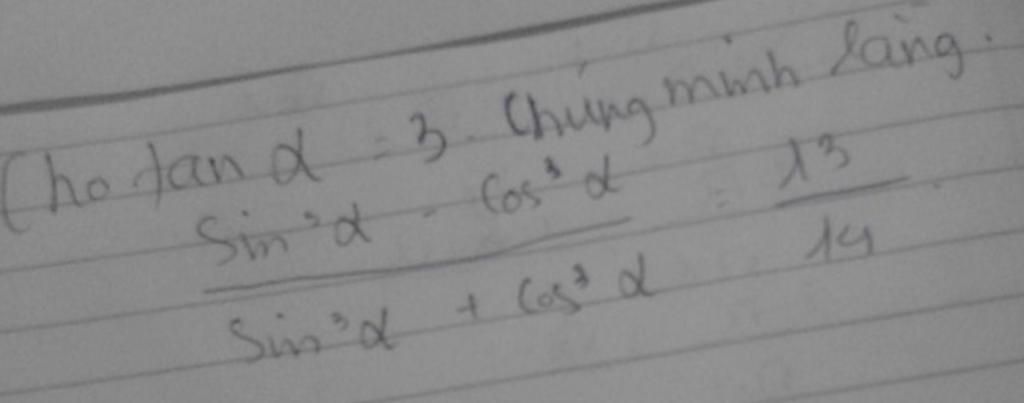 Cho tan α = 3. Chứng minh làng.
sin³α - cos³α / sin³α + cos³α = 13/14